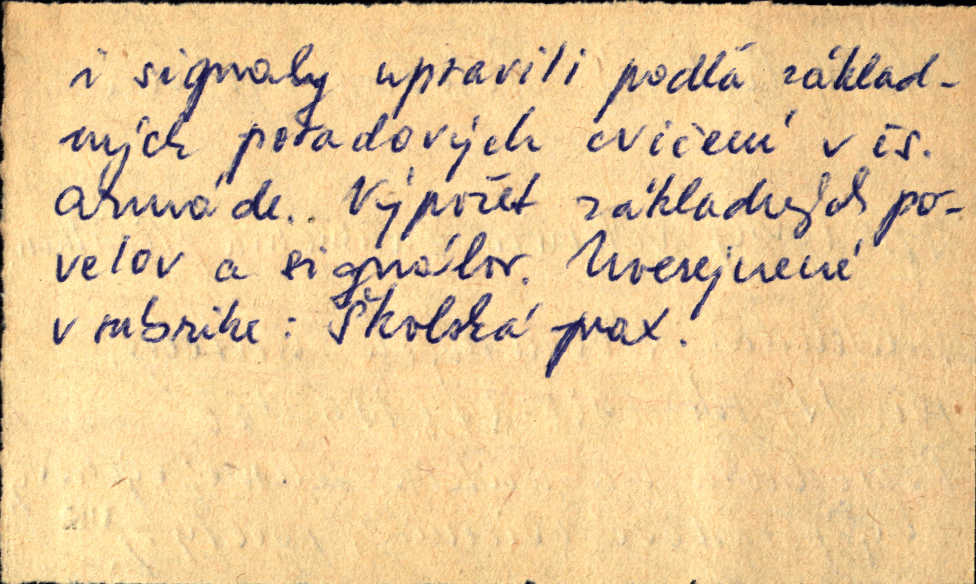 i signaly upravili podlá základ-
ných poradových cvičení v čs.
armáde.. Výpočet základných po-
velov a signálov. Uverejnené
v rubrike: Školská prax.